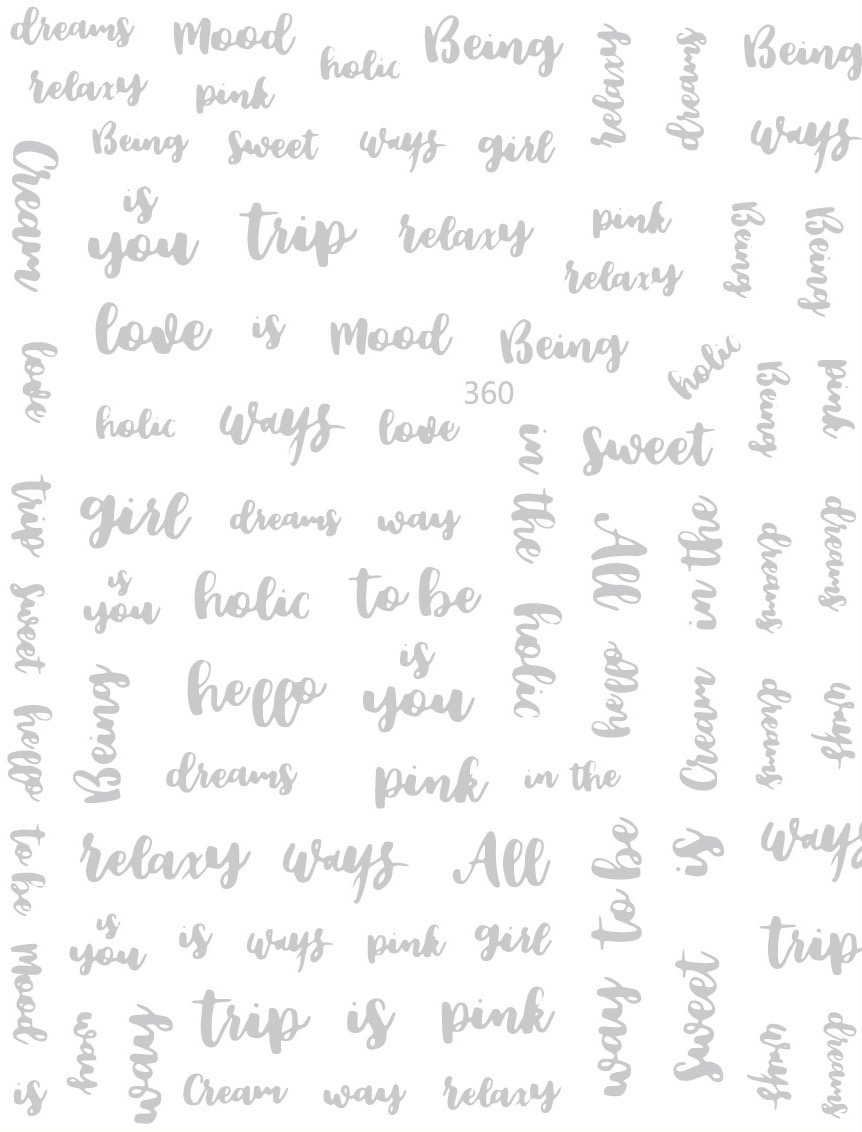 dreams Mood holic Being relaxy dreams Being
relaxy pink
Being sweet ways girl ways
Cream
is
you trip relaxy pink Being Being
relaxy
love is Mood Being holic
love Being pink
360
holic ways love in the sweet
trip girl dreams way All in the dreams dreams
sweet is
you holic to be holic
hello
Being hello is
you Cream dreams ways
hello
dreams pink in the
to be relaxy ways All way to be is ways
is
you is ways pink girl sweet trip
Mood
way way trip is pink ways dreams
is Cream way relaxy